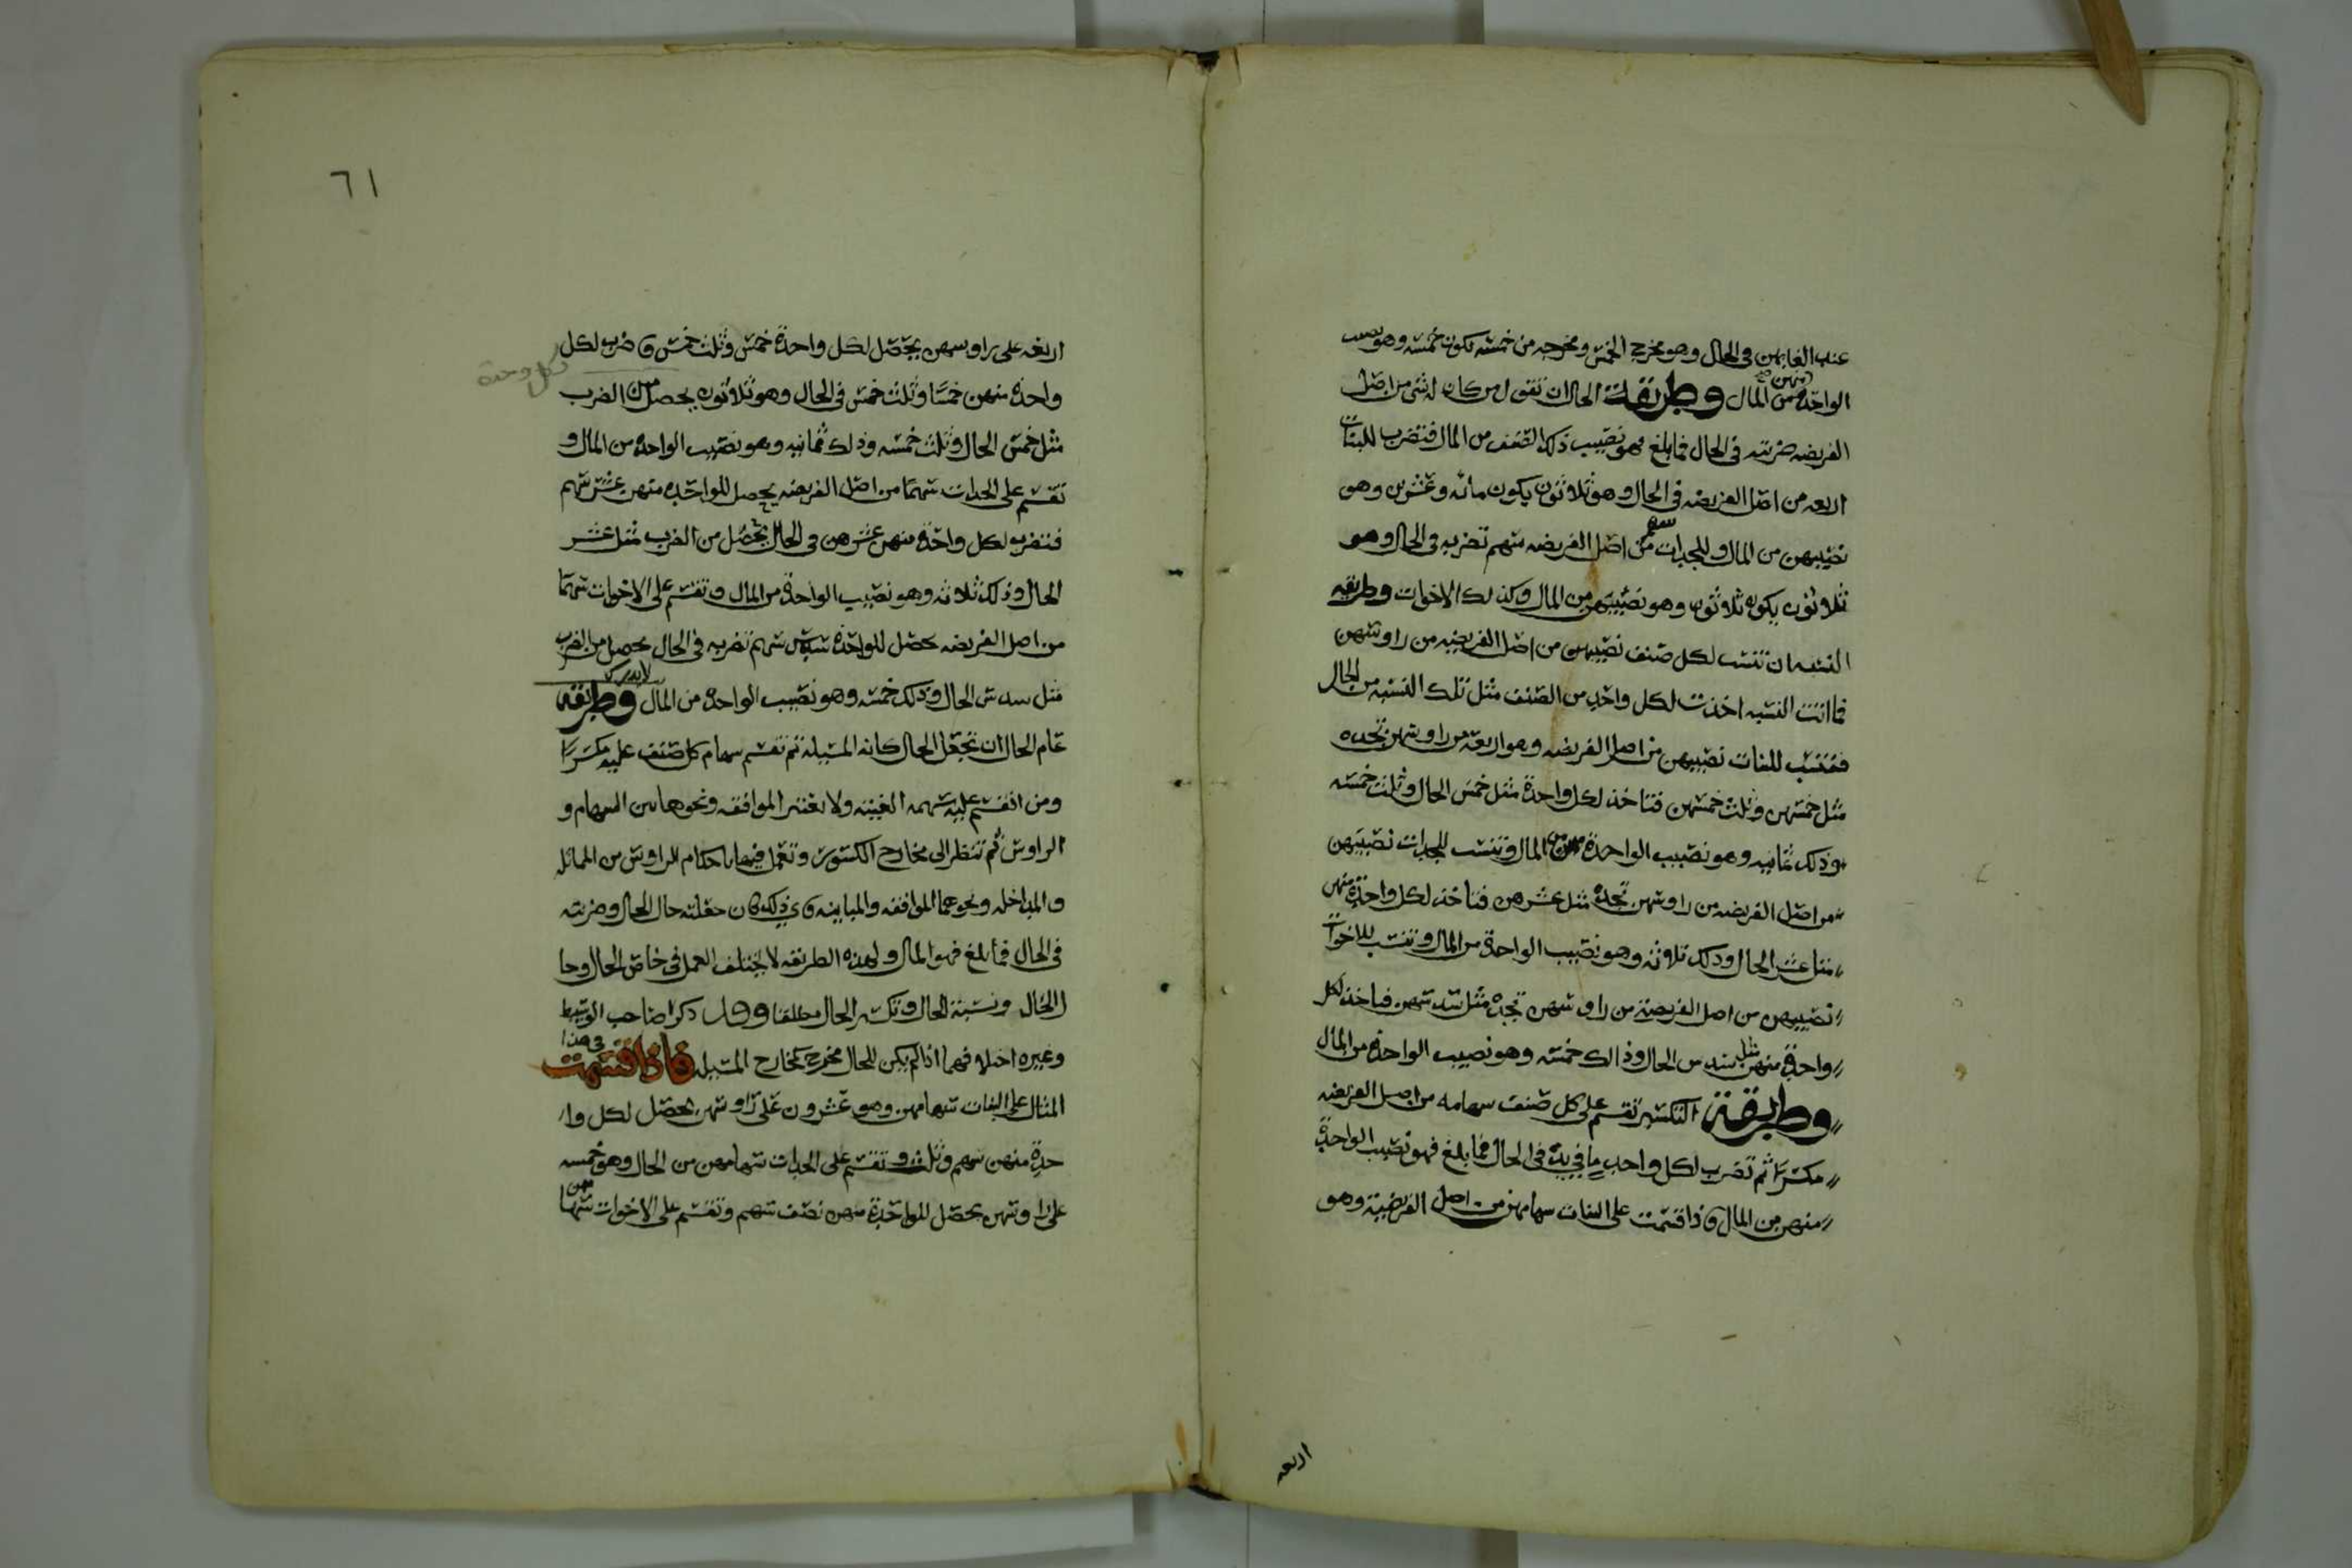 عند الغايبين في الحال وهو مخرج الخمس ومخرجه من خمسه يكون خمسه وهو نصيب
الواحده منهن من المال وطريقة الحال ان تقول من كان له شي من اصل
الفريضه ضربته في الحال فما بلغ فهو نصيب ذلك الصنف من المال فتضرب للبنات
اربعه من اصل الفريضه في الحال وهو ثلاثون يكون مائه وعشرين وهو
نصيبهن من المال وللجدات سهم من اصل الفريضه سهم تضربه في الحال وهو
ثلاثون يكون ثلاثون وهو نصيبهن من المال وكذلك الاخوات وطريقه
النسبه ان تنسب لكل صنف نصيبهن من اصل الفريضه من راوسهن
فما اتت النسبه اخذت لكل واحد من الصنف مثل تلك النسبه من الحال
فتنسب للبنات نصيبهن من اصل الفريضه وهو اربعه من راوسهن تجده
مثل خمسهن وثلث خمسهن فتاخذ لكل واحدة مثل خمس الحال وثلث خمسه
وذلك ثمانيه وهو نصيب الواحدة من المال وتنسب للجدات نصيبهن
من اصل الفريضه من راوسهن تجده مثل عشرهن فتاخذ لكل واحدة منهن
مثل عشر الحال وذلك ثلاثه وهو نصيب الواحدة من المال وتنسب للاخوات
نصيبهن من اصل الفريضة من راوسهن تجده مثل سدسهن فتاخذ لكل
واحدة منهن مثل سدس الحال وذالك خمسه وهو نصيب الواحدة من المال
وطريقة التكسير تقسم على كل صنف سهامه من اصل الفريضه
مكسرًا ثم تضرب لكل واحد ما في يده في الحال فما بلغ فهو نصيب الواحدة
منهن من المال فاذا قسمت على البنات سهامهن من اصل الفريضة وهو
اربعه
٦١
اربعه على راوسهن يحصل لكل واحدة خمس وثلث خمس فاضرب لكل
كل وحدة
واحدة منهن خمسًا وثلث خمس في الحال وهو ثلاثون يحصل من الضرب
مثل خمس الحال وثلث خمسه وذلك ثمانيه وهو نصيب الواحده من المال و
تقسم على الجدات سهمًا من اصل الفريضه يحصل للواحده منهن عشر سهم
فتضرب لكل واحدة منهن عشرهن في الحال يحصل من الضرب مثل عشر
الحال وذلك ثلاثه وهو نصيب الواحدة من المال وتقسم على الاخوات سهمًا
من اصل الفريضه يحصل للواحدة سدس سهم تضربه في الحال يحصل من الضرب
مثل سدس الحال وذلك خمسه وهو نصيب الواحده من المال وطريقه
عام الحال ان تجعل الحال كانه المسيلة ثم تقسم سهام كل صنف عليه مكسرًا
ومن انقسم عليه سهمه الغيته ولا يعتبر الموافقه ونحوها بين السهام و
الراوس ثم تنظر الى مخارج الكسور وتعمل فيها باحكام الراوس من المماثله
والمداخله ونحوهما الموافقه والمباينه فاي ذلك كان جعلته حال الحال وضربته
في الحال فما بلغ فهو المال ولهذه الطريقه لا يختلف العمل في خاص الحال وحا
ل الحال ونسبة الحال وتكسير الحال مطلقا وقد ذكر صاحب الوسيط
وغيره اختلافهما اذا لم يكن للحال مخرج كمخارج المسيله فاذا قسمت في هذا
المثال على البنات سهامهن وهو عشرون على راوسهن يحصل لكل وا
حدة منهن سهم وثلث وتقسم على الجدات سهامهن من الحال وهو خمسه
على راوسهن يحصل للواحدة منهن نصف سهم وتقسم على الاخوات سهامهن